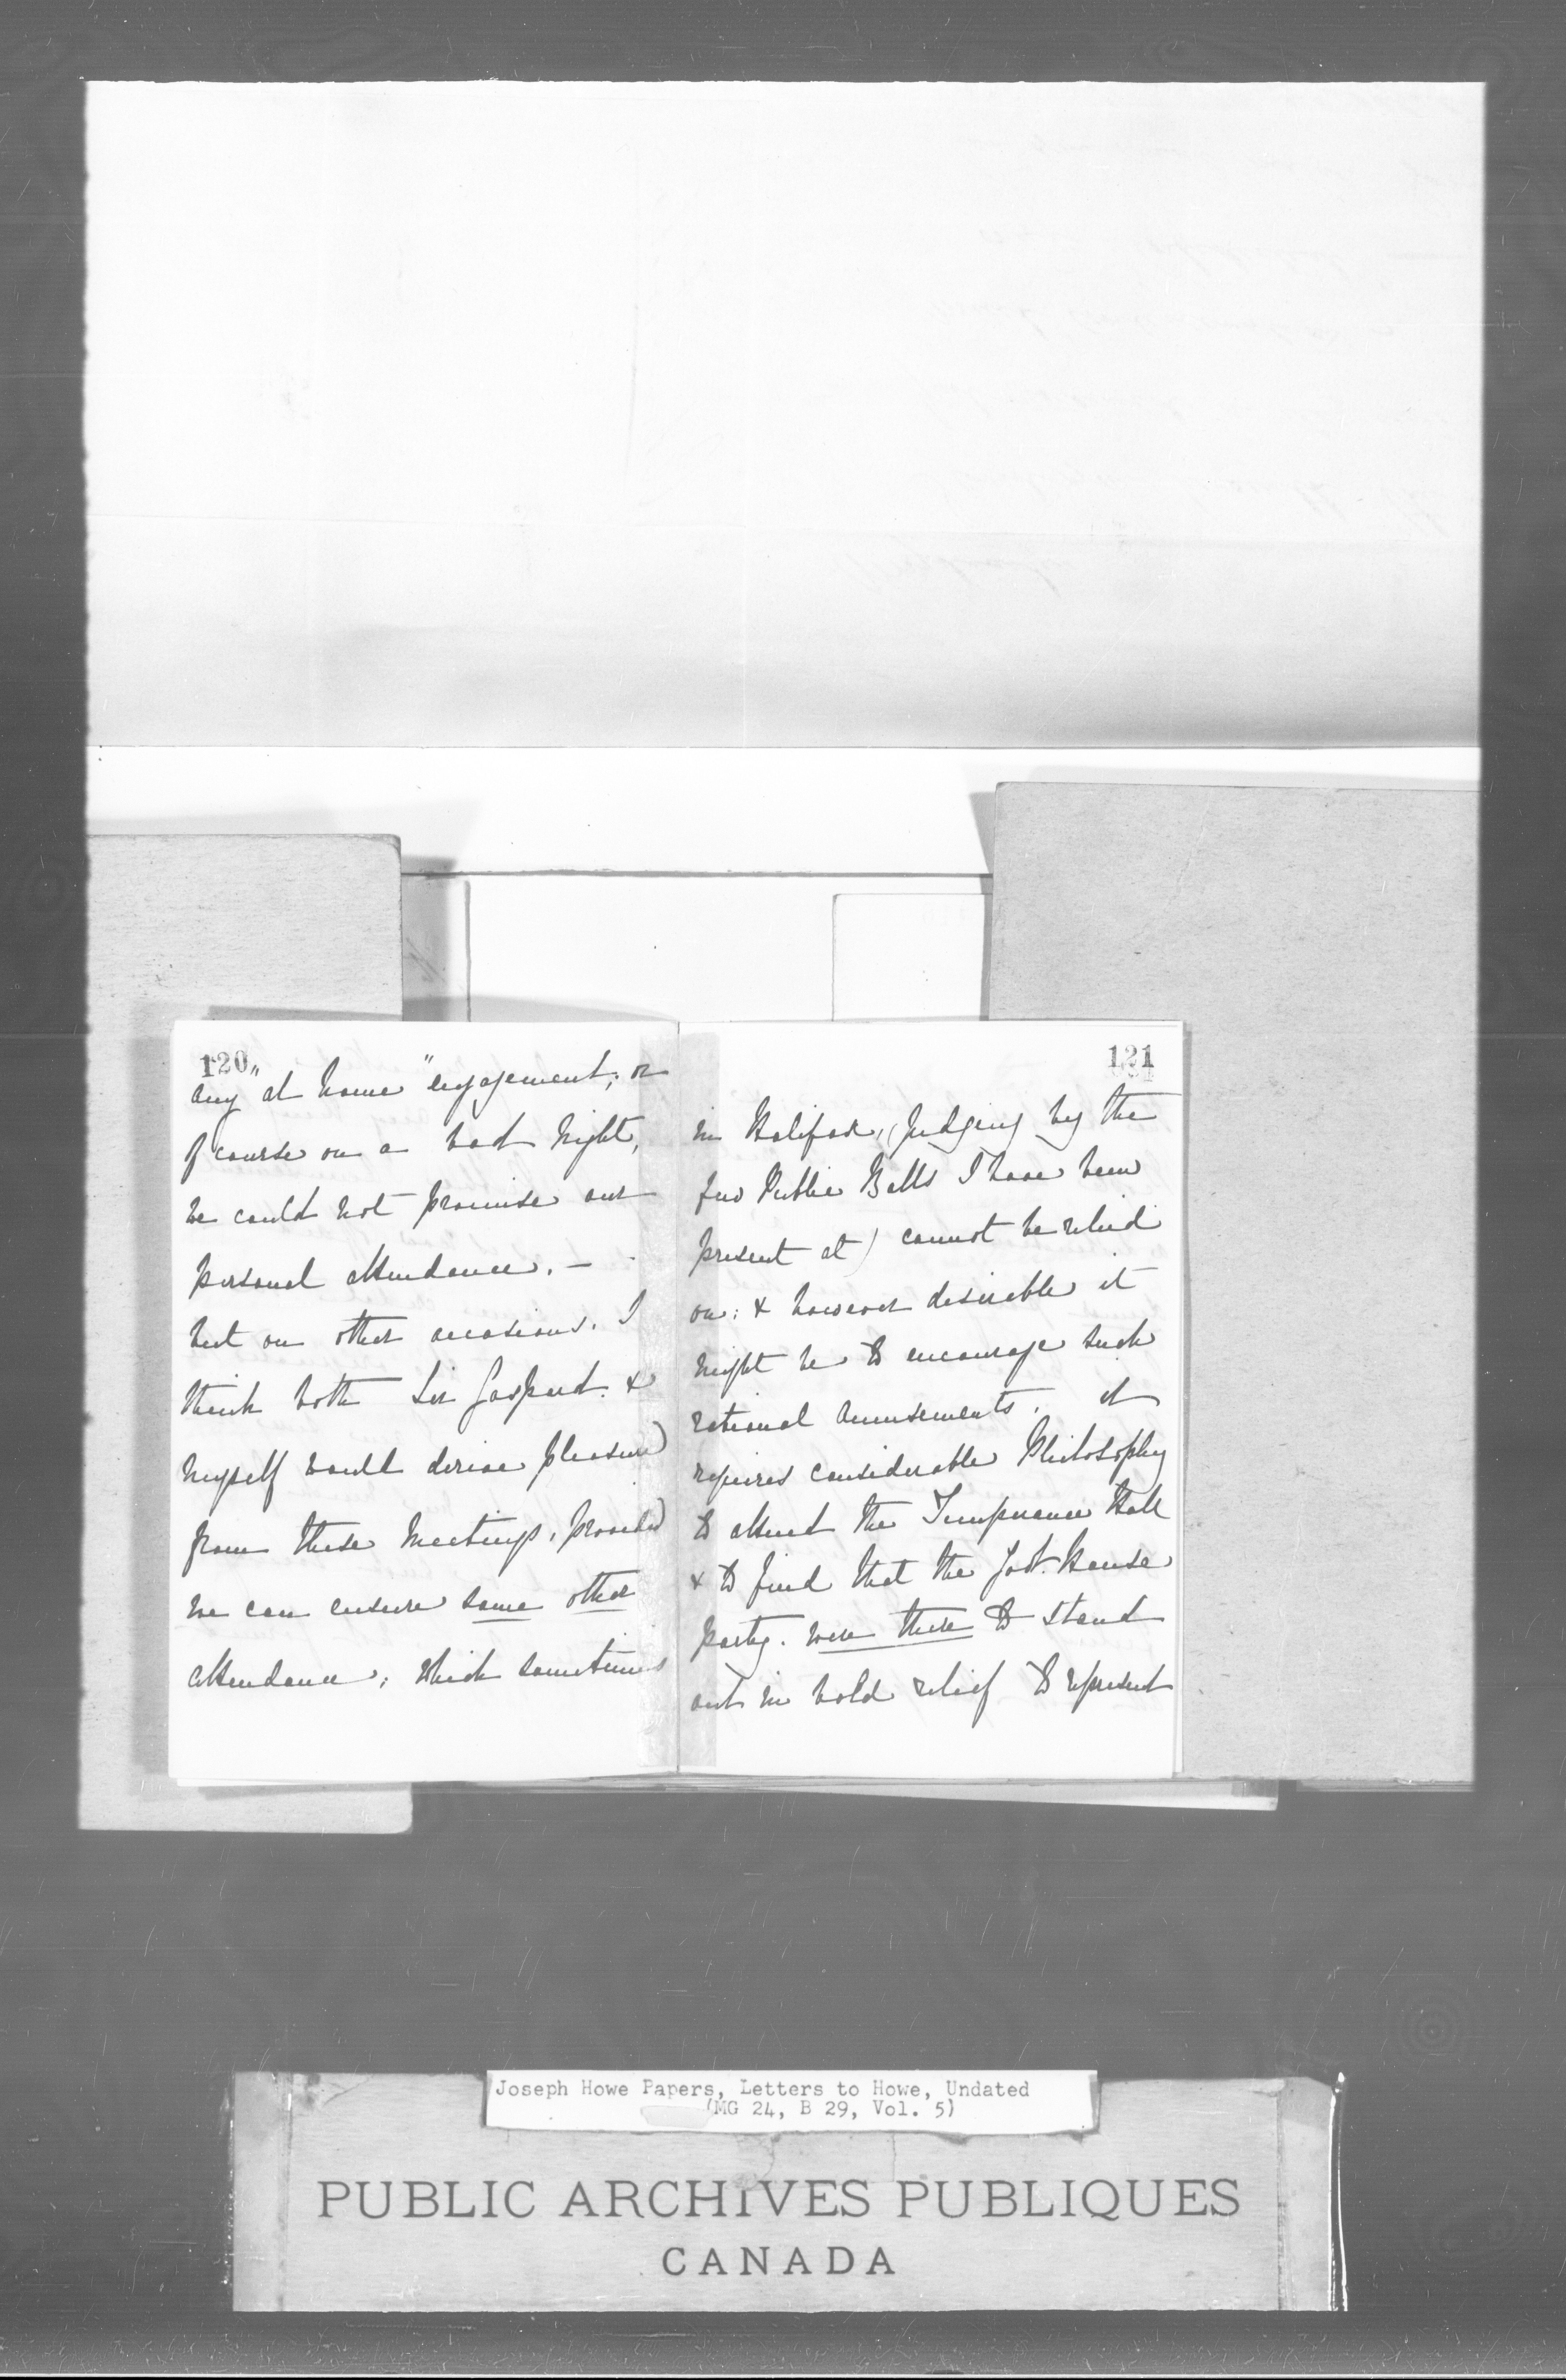 120
any "at home" engagement; or
of course on a bad night,
we could not promise our
personal attendance. —
but on other occasions. I
think both Sir Gaspard. &
myself would derive pleasure
from these meetings, provided
we can ensure some other
attendance; which sometimes
121
in Halifax, (judging by the
few Public Balls I have been
present at) cannot be relied
on: & however desirable it
might be to encourage such
rational amusements, it
requires considerable Philosophy
to attend the Temperance Hall
& to find that the Govt. House
party. were there to stand
out in bold relief to represent
Joseph Howe Papers, Letters to Howe, Undated
(MG 24, B 29, Vol. 5)
PUBLIC ARCHIVES PUBLIQUES
CANADA